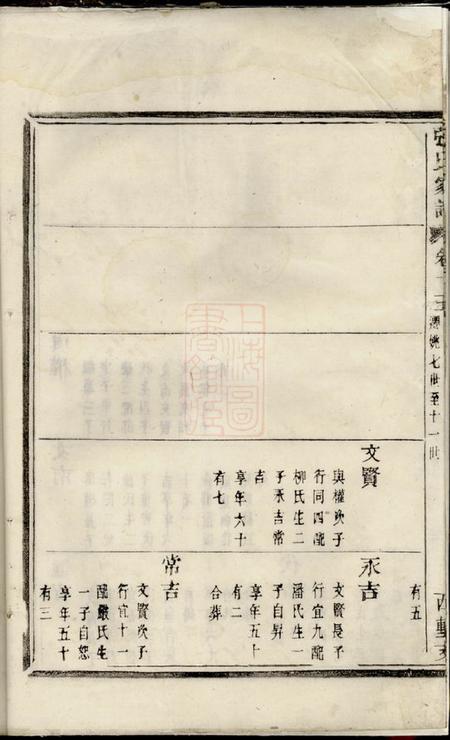 文賢
與權次子
行同四配
柳氏生二
子永吉常
吉
享年六十
有七
有五
永吉
文賢長子
行宜九配
潘氏生一
子自昇
享年五十
有二
合葬
常吉
文賢次子
行宜十一
配嚴氏生
一子自恕
享年五十
有三
氏家譜
卷二
七世至十一世
上海圖書館藏